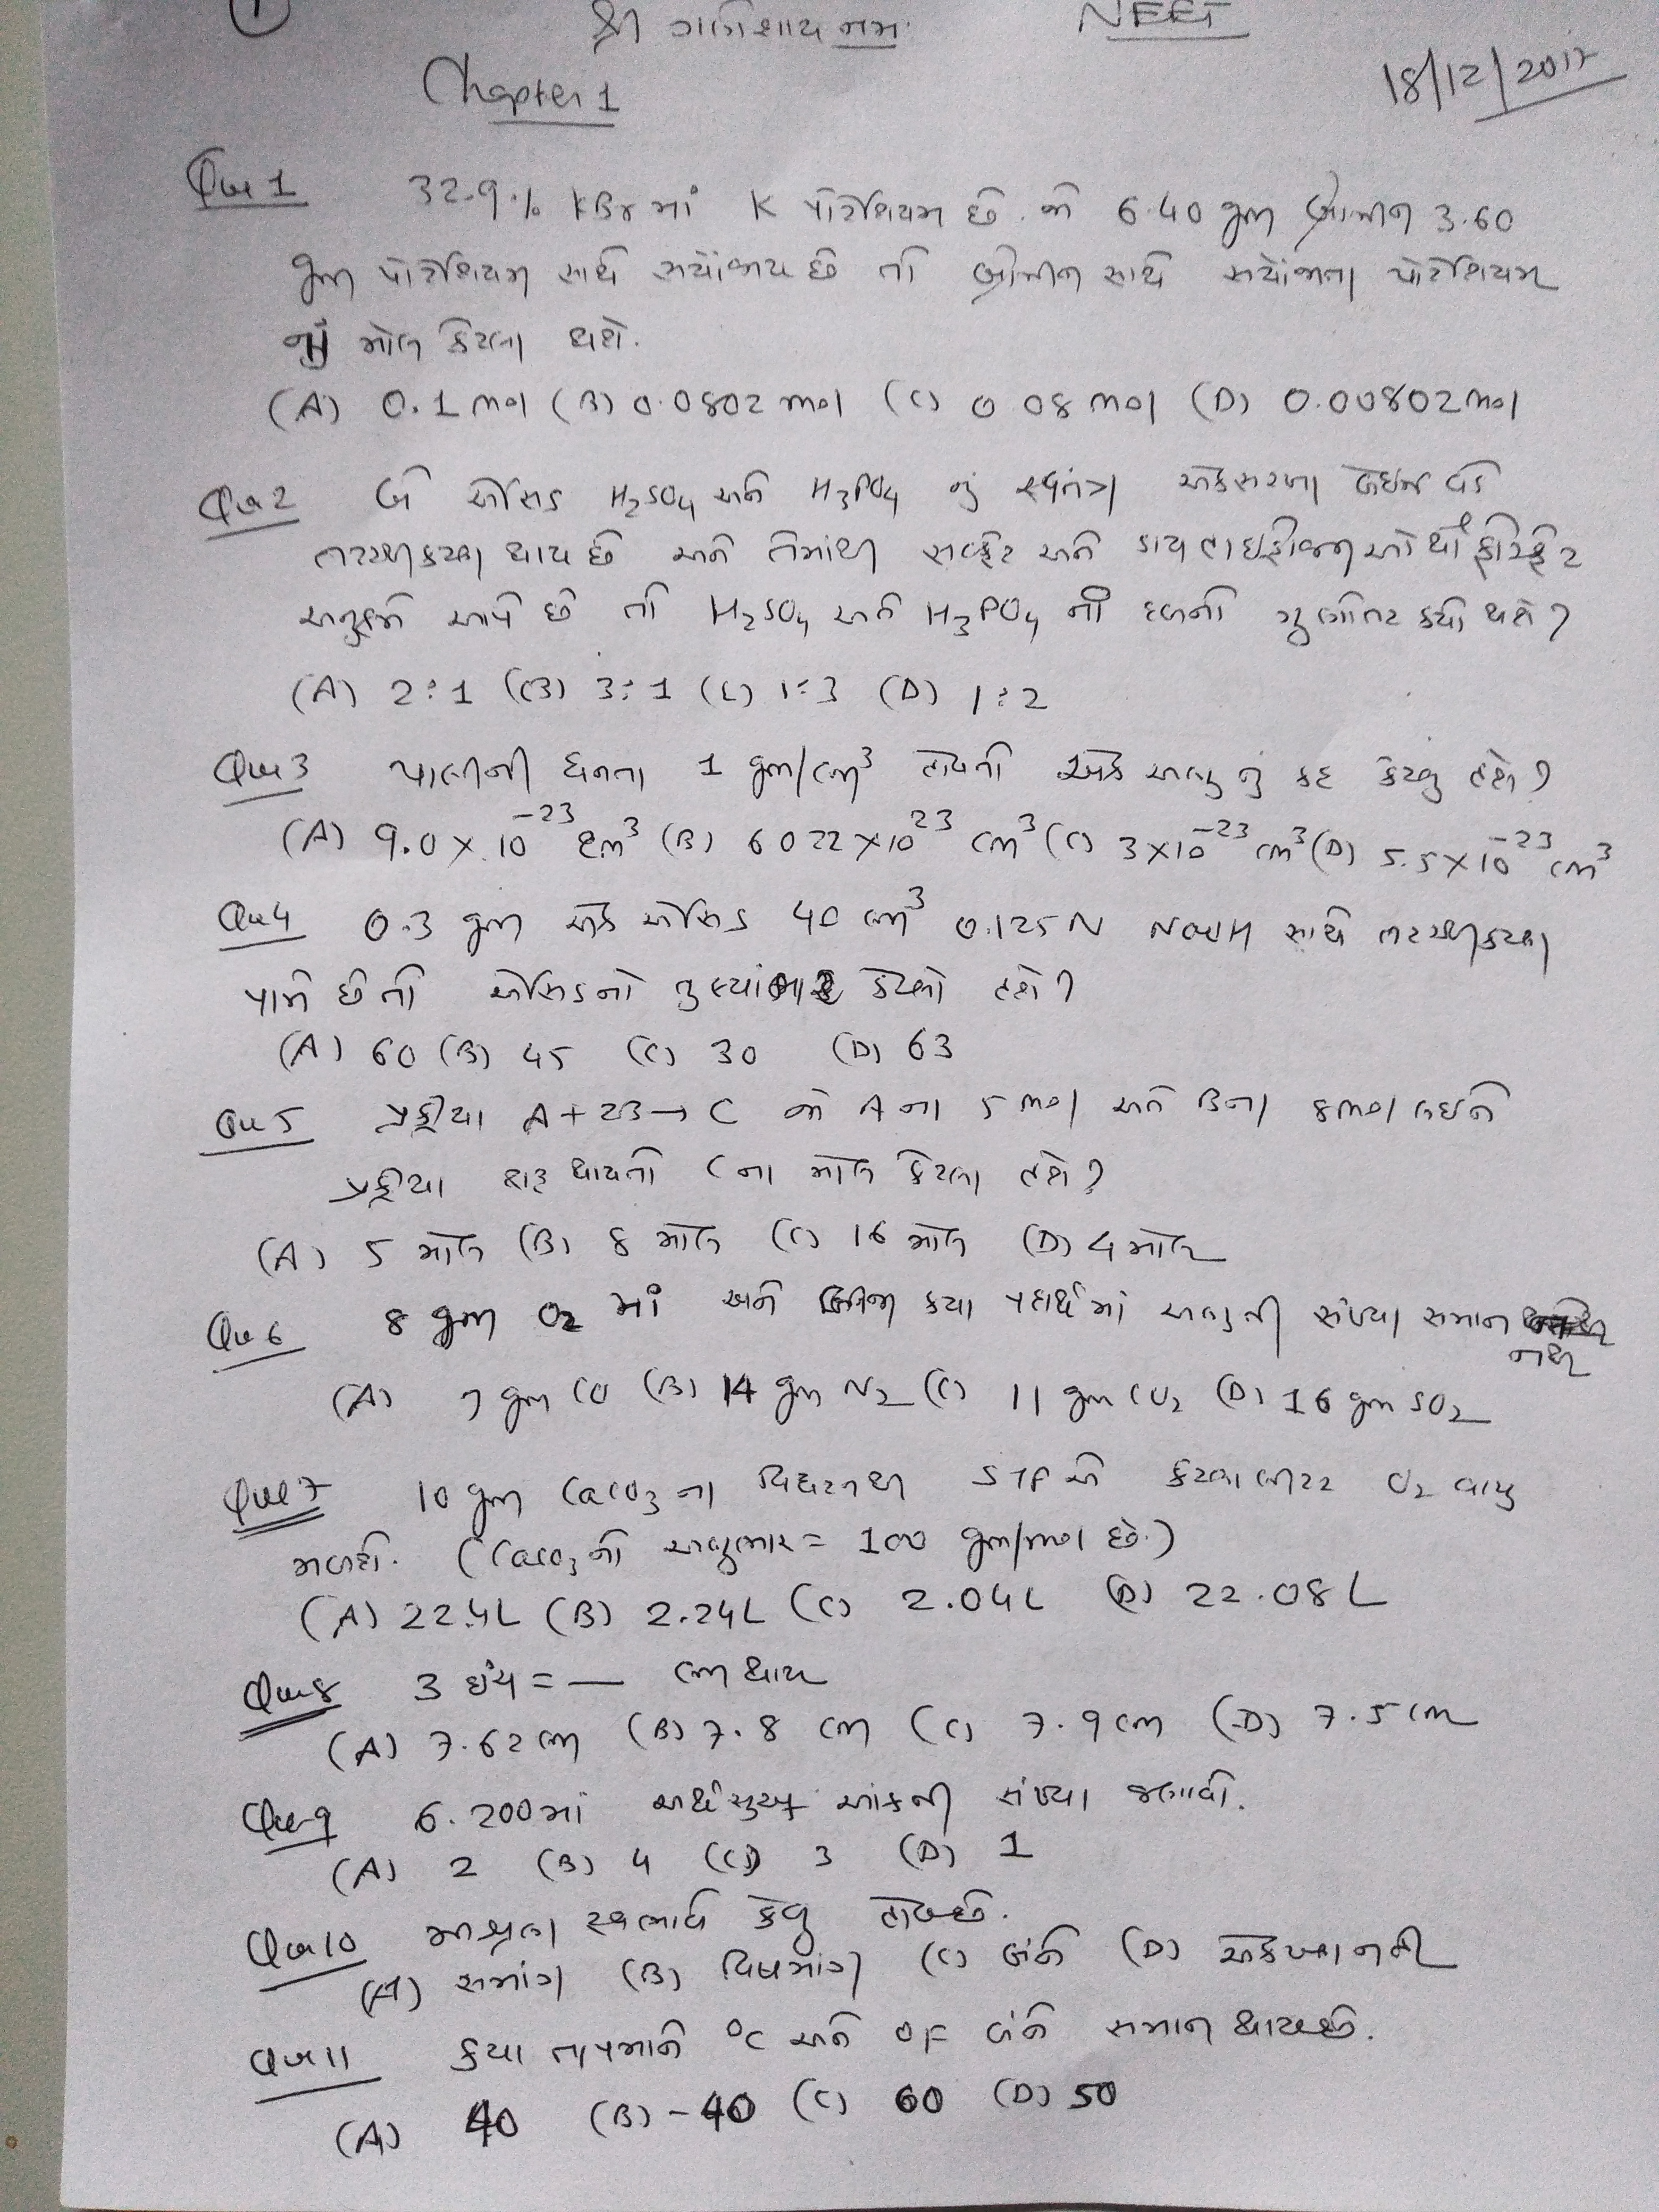 1
શ્રી ગણેશાય નમઃ NEET
Chapter 1 18/12/2017
Que 1 32.9 % KBr માં K પોટેશિયમ છે. જો 6.40 gm બ્રોમીન 3.60
gm પોટેશિયમ સાથે સંયોજાય છે તો બ્રોમીન સાથે સંયોજાતા પોટેશિયમ
નાં મોલ કેટલા થશે.
(A) 0.1 mol (B) 0.0802 mol (C) 0.08 mol (D) 0.00802 mol
Que 2 બે એસિડ H2SO4 અને H3PO4 નું સ્વતંત્ર એકસરખા બેઇઝ વડે
તટસ્થીકરણ થાય છે અને તેમાંથી સલ્ફેટ અને ડાયહાઇડ્રોજન ઓર્થોફોસ્ફેટ
અનુક્રમે આપે છે તો H2SO4 અને H3PO4 ની દળનો ગુણોત્તર કયો થશે?
(A) 2:1 (B) 3:1 (C) 1:3 (D) 1:2
Que 3 પાણીની ઘનતા 1 gm/cm³ હોયતો એક અણુનું કદ કેટલું હશે?
(A) 9.0 × 10⁻²³ cm³ (B) 6022 × 10²³ cm³ (C) 3×10⁻²³ cm³ (D) 5.5×10⁻²³ cm³
Que 4 0.3 gm એક એસિડ 40 cm³ 0.125 N NaOH સાથે તટસ્થીકરણ
પામે છે તો એસિડનો તુલ્યાંભાર કેટલો હશે?
(A) 60 (B) 45 (C) 30 (D) 63
Que 5 પ્રક્રીયા A + 2B → C જો A ના 5 mol અને B ના 8 mol લઇને
પ્રક્રીયા શરૂ થાયતો C ના મોલ કેટલા હશે?
(A) 5 મોલ (B) 8 મોલ (C) 16 મોલ (D) 4 મોલ
Que 6 8 gm O2 માં અને બીજા કયા પદાર્થમાં અણુની સંખ્યા સમાન નથી
(A) 7 gm CO (B) 14 gm N2 (C) 11 gm CO2 (D) 16 gm SO2
Que 7 10 gm CaCO3 ના વિઘટનથી STP એ કેટલા લીટર O2 વાયુ
મળશે. (CaCO3 નો અણુભાર = 100 gm/mol છે.)
(A) 22.4L (B) 2.24L (C) 2.04L (D) 22.08 L
Que 8 3 ઇંચ = — cm થાય
(A) 7.62 cm (B) 7.8 cm (C) 7.9 cm (D) 7.5 cm
Que 9 6.200 માં અર્થસુચક આંકની સંખ્યા જણાવો.
(A) 2 (B) 4 (C) 3 (D) 1
Que 10 મીશ્રણ સ્વભાવે કેવુ હોયછે.
(A) સમાંગ (B) વિષમાંગ (C) બંને (D) એકપણ નહી
Que 11 કયા તાપમાને °C અને °F બંને સમાન થાયછે.
(A) 40 (B) -40 (C) 60 (D) 50